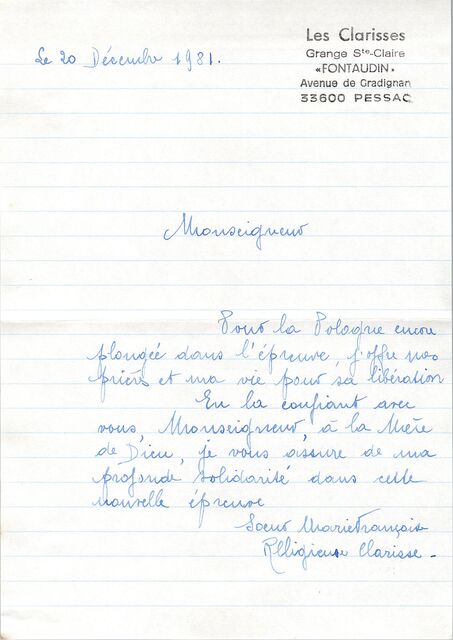 Les Clarisses
Grange Ste-Claire
«FONTAUDIN»
Avenue de Gradignan
33600 PESSAC
Le 20 Décembre 1981.
Monseigneur
Pour la Pologne encore
plongée dans l'épreuve, j'offre mes
prières et ma vie pour sa libération
En la confiant avec
vous, Monseigneur, à la Mère
de Dieu, je vous assure de ma
profonde solidarité dans cette
nouvelle épreuve
Soeur Marie Françoise
Religieuse Clarisse.